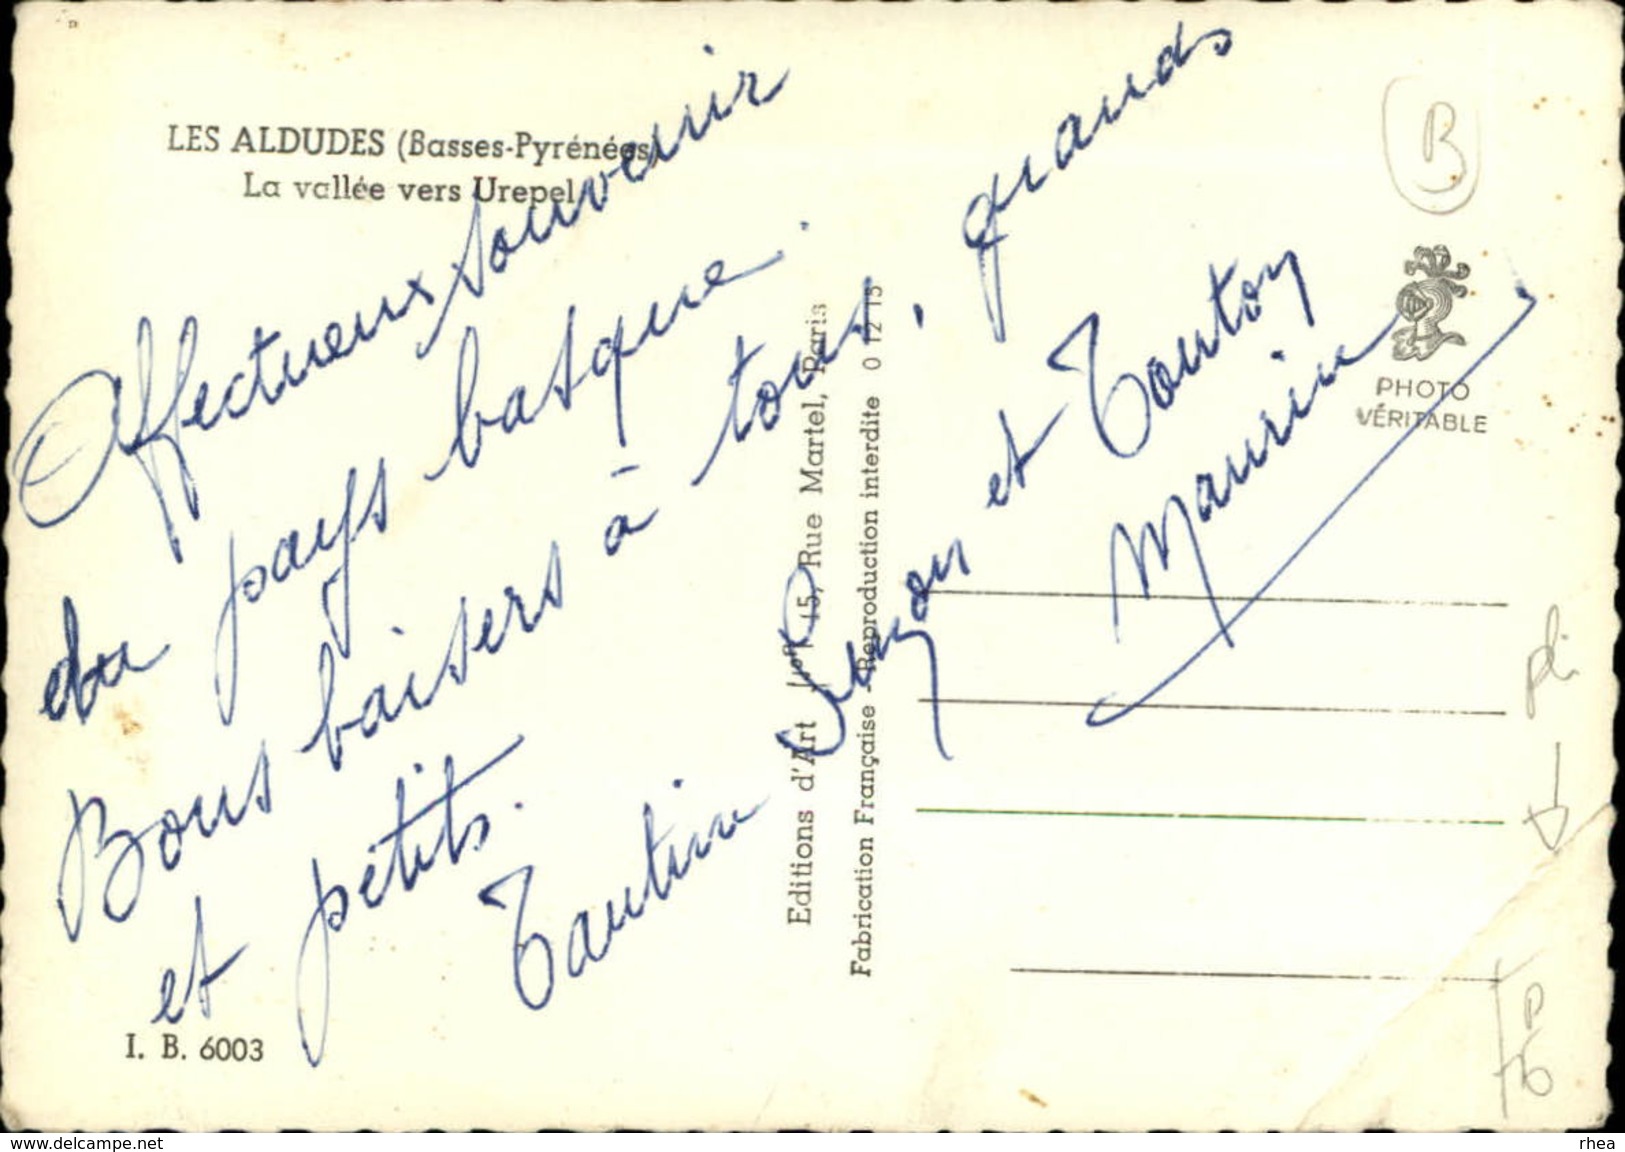 LES ALDUDES (Basses-Pyrénées)
La vallée vers Urepel
Affectueux souvenir
du pays basque.
Bons baisers à tous, grands
et petits.
Tautine Suzon et Tourton
Maurin
I. B. 6003
Editions d'Art 15, Rue Martel, Paris
Fabrication Française - Reproduction interdite 0 12 15
B
PHOTO
VÉRITABLE
pli
delcampe.net
rhea